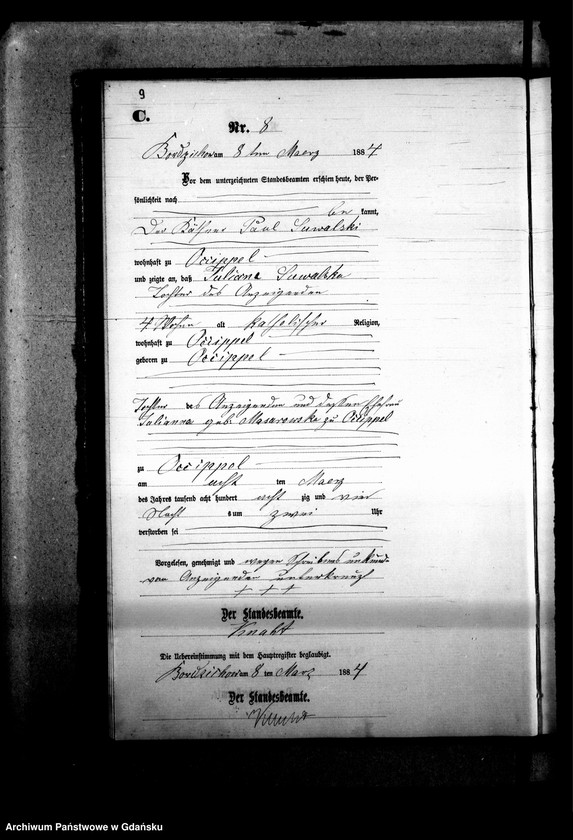 9
C.
Nr. 8
Bordzichow am 8 ten Maerz 1884
Vor dem unterzeichneten Standesbeamten erschien heute, der Per-
sönlichkeit nach
be kannt,
Der Käthner Paul Suwalski
wohnhaft zu Occippel
und zeigte an, daß Julianna Suwalska
Tochter des Anzeigenden
4 Wochen alt katholischer Religion,
wohnhaft zu Occippel
geboren zu Occippel
Tochter des Anzeigenden und dessen Ehefrau
Julianna geb. Masarowska zu Occippel
zu Occippel
am acht ten Maerz
des Jahres tausend acht hundert acht zig und vier
Nachts um zwei Uhr
verstorben sei
Vorgelesen, genehmigt und wegen Schreibens unkund-
vom Anzeigenden unterkreuzt
+ + +
Der Standesbeamte.
Die Uebereinstimmung mit dem Hauptregister beglaubigt.
Bordzichow am 8 ten März 1884
Der Standesbeamte.
Archiwum Państwowe w Gdańsku